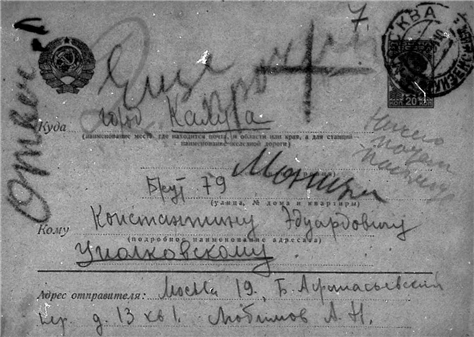 7.
МОСКВА
Ответ
Еще
20
гор. Калуга
Куда
(наименование места, где находится почта, и области или края, а для станций
наименование железной дороги)
Брут 79
(улица, № дома и квартиры)
Константину Эдуардовичу
Кому
(подробное наименование адресата)
Циолковскому
Адрес отправителя: Москва 19, Б. Афанасьевский
пер. д. 13 кв 1. Любимов А. Н.